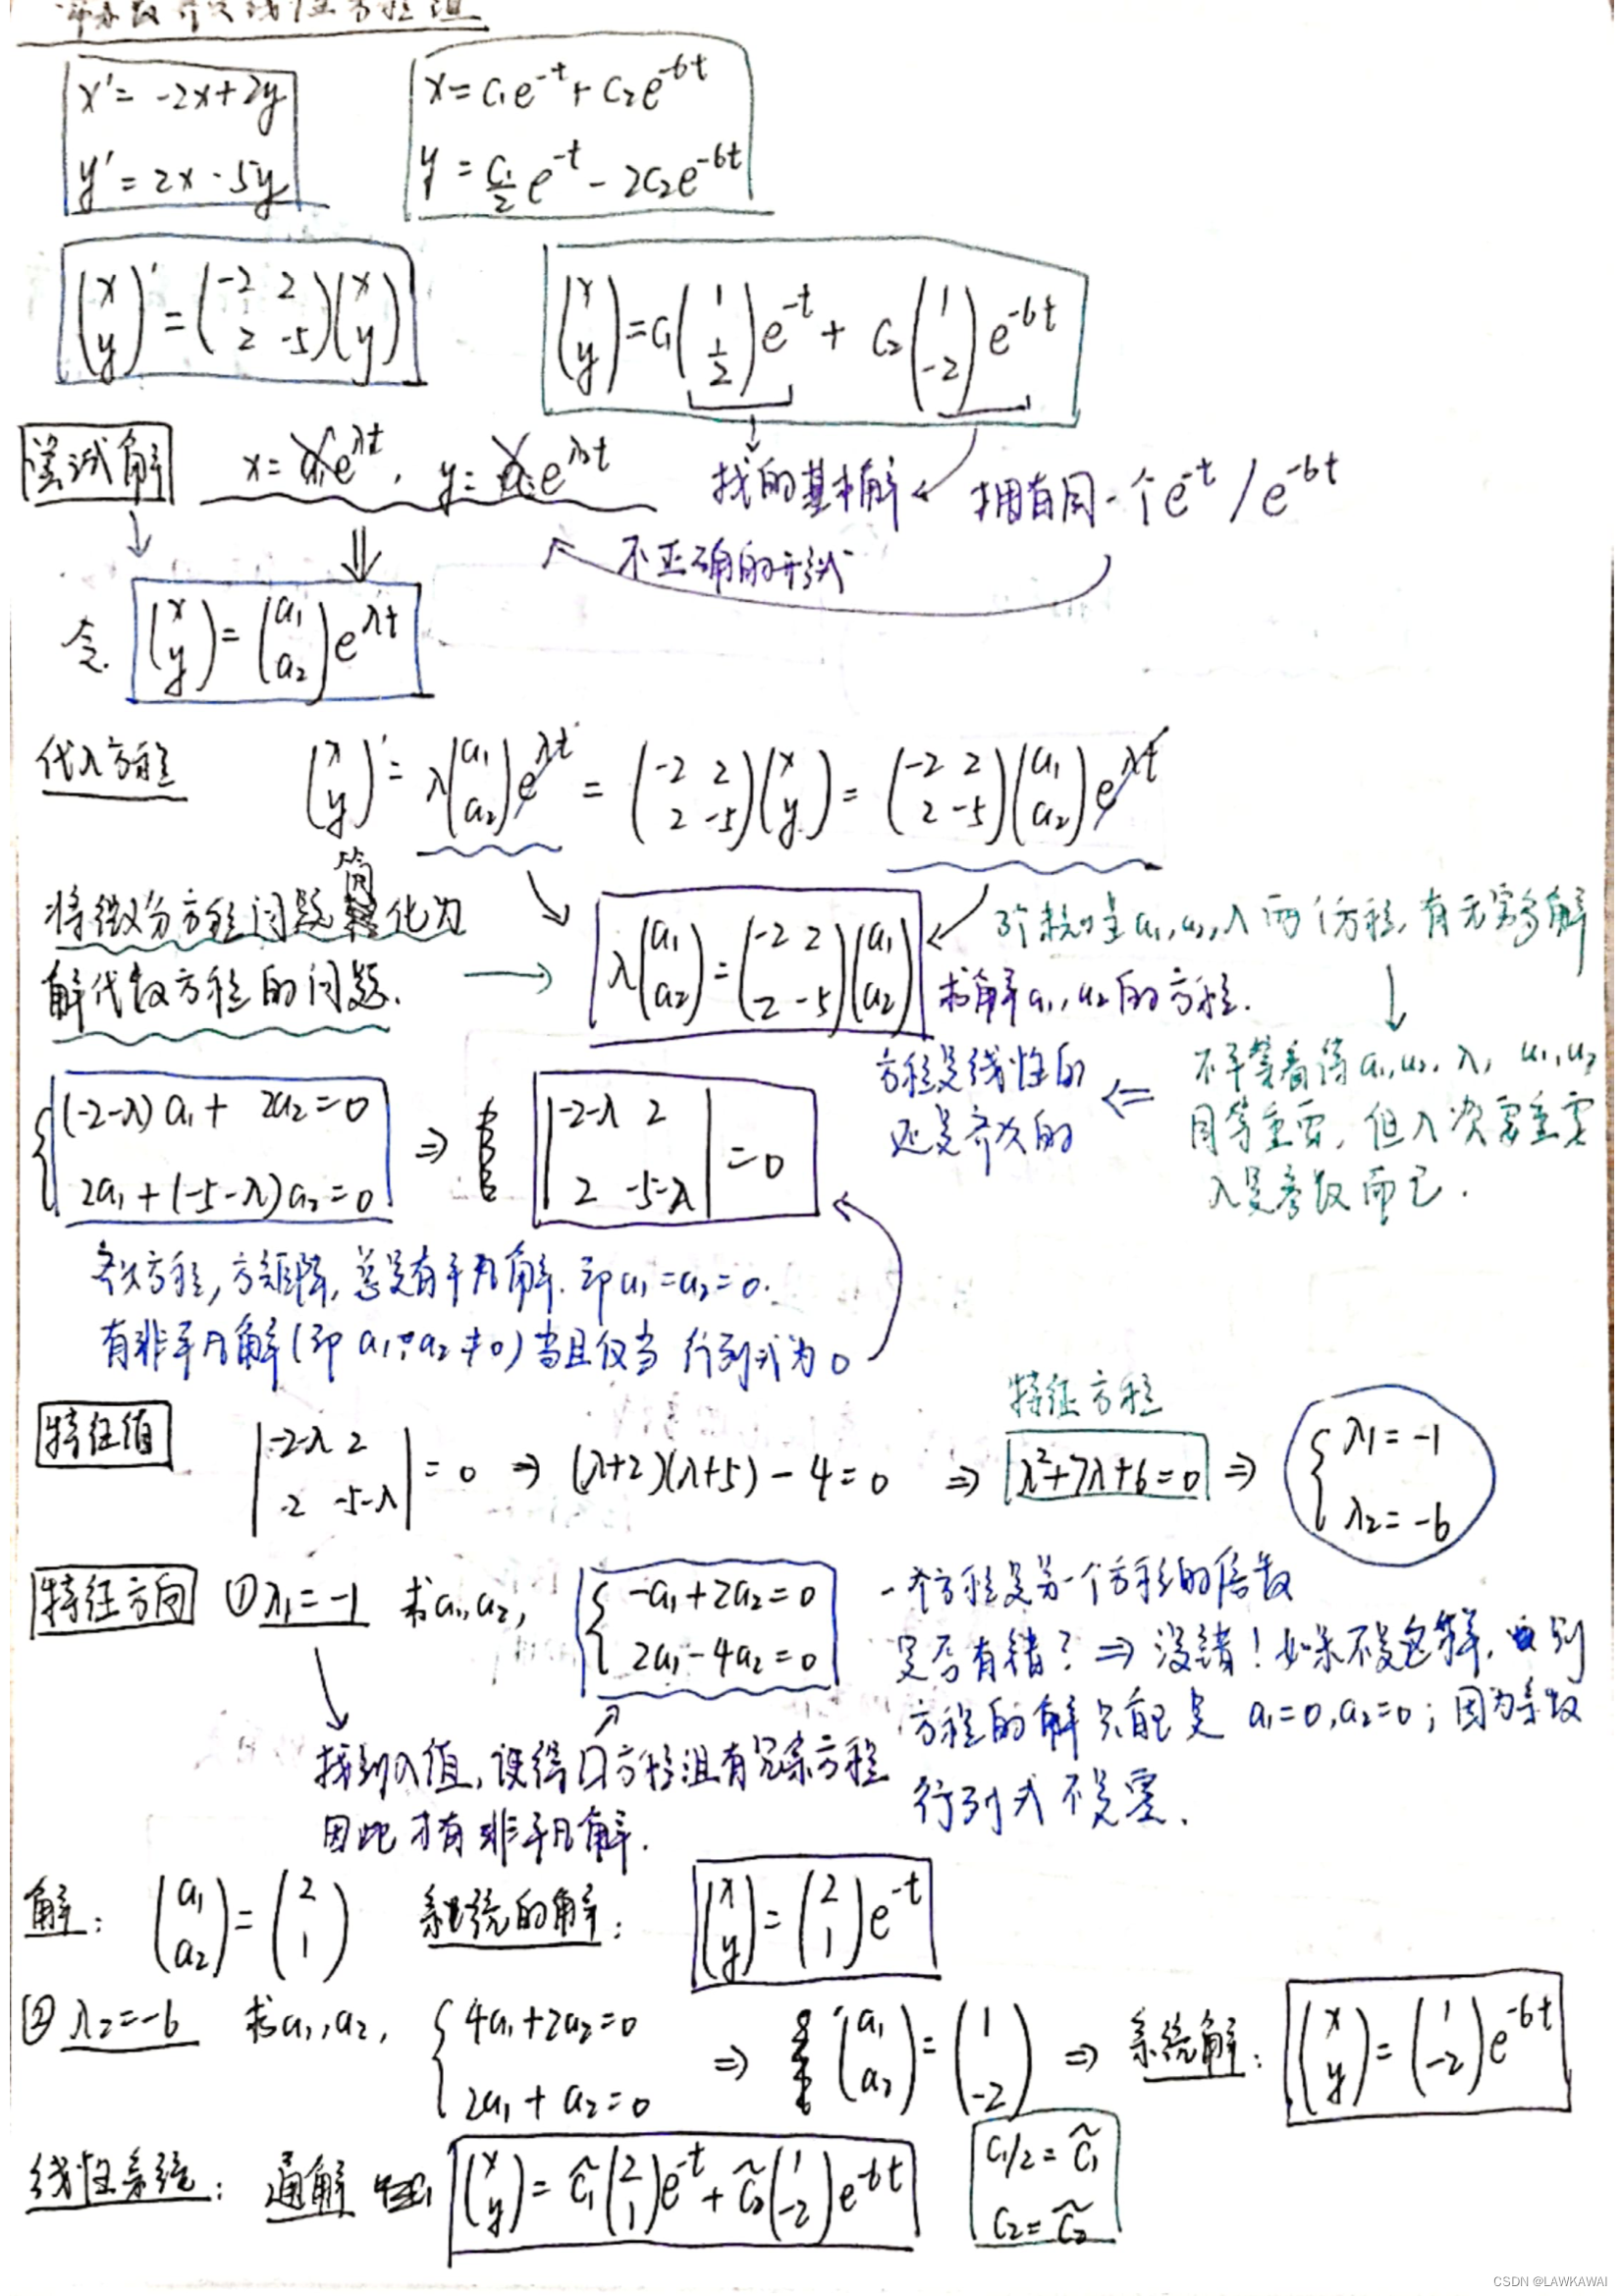 常系数齐次线性方程组
x' = -2x+2y
y' = 2x - 5y
x = c₁e^{-t} + c₂e^{-6t}
y = \frac{c₁}{2} e^{-t} - 2c₂e^{-6t}
\begin{pmatrix} x \\ y \end{pmatrix}' = \begin{pmatrix} -2 & 2 \\ 2 & -5 \end{pmatrix} \begin{pmatrix} x \\ y \end{pmatrix}
\begin{pmatrix} x \\ y \end{pmatrix} = c₁ \begin{pmatrix} 1 \\ \frac{1}{2} \end{pmatrix} e^{-t} + c₂ \begin{pmatrix} 1 \\ -2 \end{pmatrix} e^{-6t}
尝试解 x = a₁e^{λt}, y = a₂e^{λ₂t}
找的基本解 拥有同一个e^{-t} / e^{-6t}
不正确的形式
令 \begin{pmatrix} x \\ y \end{pmatrix} = \begin{pmatrix} a₁ \\ a₂ \end{pmatrix} e^{λt}
代入方程 \begin{pmatrix} x \\ y \end{pmatrix}' = λ \begin{pmatrix} a₁ \\ a₂ \end{pmatrix} e^{λt} = \begin{pmatrix} -2 & 2 \\ 2 & -5 \end{pmatrix} \begin{pmatrix} x \\ y \end{pmatrix} = \begin{pmatrix} -2 & 2 \\ 2 & -5 \end{pmatrix} \begin{pmatrix} a₁ \\ a₂ \end{pmatrix} e^{λt}
将微分方程问题简化为
解代数方程的问题.
→ λ \begin{pmatrix} a₁ \\ a₂ \end{pmatrix} = \begin{pmatrix} -2 & 2 \\ 2 & -5 \end{pmatrix} \begin{pmatrix} a₁ \\ a₂ \end{pmatrix}
3个未知量a₁, a₂, λ 两个方程, 有无穷多解
求解a₁, a₂的方程.
不平等看待a₁, a₂, λ, a₁, a₂
同等重要, 但λ次要重要
λ是参数而已.
⇐ 方程是线性的
还是齐次的
(-2-λ)a₁ + 2a₂ = 0
2a₁ + (-5-λ)a₂ = 0
⇒ \begin{vmatrix} -2-λ & 2 \\ 2 & -5-λ \end{vmatrix} = 0
齐次方程, 方矩阵, 总是有平凡解. 即 a₁ = a₂ = 0.
有非平凡解(即 a₁, a₂ ≠ 0) 当且仅当 行列式为0
特征值 \begin{vmatrix} -2-λ & 2 \\ 2 & -5-λ \end{vmatrix} = 0 ⇒ (λ+2)(λ+5) - 4 = 0 ⇒ λ²+7λ+6=0 ⇒ λ₁ = -1
λ₂ = -6
特征方程
特征方向 ① λ₁ = -1 求a₁, a₂,
-a₁ + 2a₂ = 0
2a₁ - 4a₂ = 0
一个方程是另一个方程的倍数
是否有错? ⇒ 没错! 如果不是这样, 则
方程的解只能是 a₁=0, a₂=0; 因为系数
行列式不是零.
找到λ值, 使得□方程组有冗余方程
因此才有非平凡解.
解: \begin{pmatrix} a₁ \\ a₂ \end{pmatrix} = \begin{pmatrix} 2 \\ 1 \end{pmatrix} 系统的解: \begin{pmatrix} x \\ y \end{pmatrix} = \begin{pmatrix} 2 \\ 1 \end{pmatrix} e^{-t}
② λ₂ = -6 求a₁, a₂,
4a₁ + 2a₂ = 0
2a₁ + a₂ = 0
⇒ \begin{pmatrix} a₁ \\ a₂ \end{pmatrix} = \begin{pmatrix} 1 \\ -2 \end{pmatrix} ⇒ 系统解: \begin{pmatrix} x \\ y \end{pmatrix} = \begin{pmatrix} 1 \\ -2 \end{pmatrix} e^{-6t}
线性系统: 通解 \begin{pmatrix} x \\ y \end{pmatrix} = \tilde{c₁} \begin{pmatrix} 2 \\ 1 \end{pmatrix} e^{-t} + \tilde{c₂} \begin{pmatrix} 1 \\ -2 \end{pmatrix} e^{-6t}
c₁/2 = \tilde{c₁}
c₂ = \tilde{c₂}
CSDN @LAWKAWAI